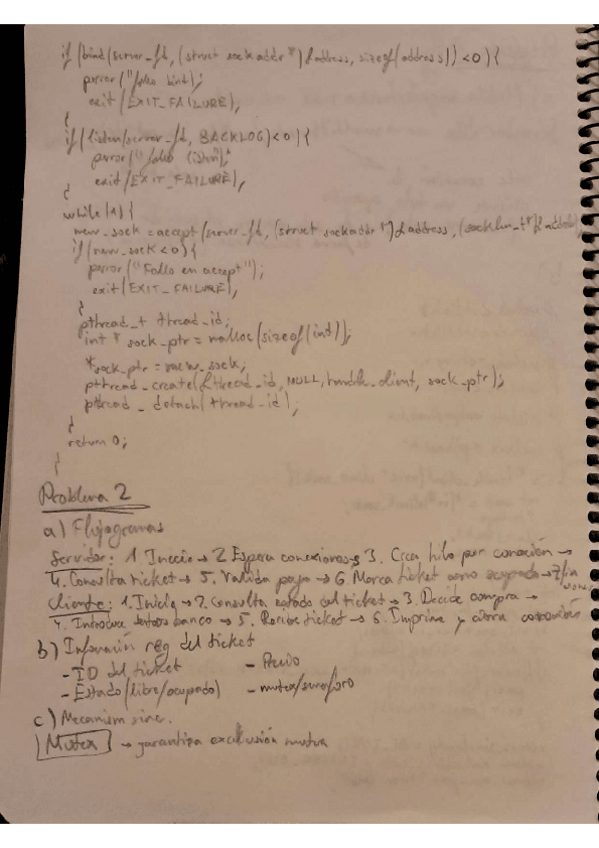 if (bind(server_fd, (struct sockaddr *) &address, sizeof(address)) < 0) {
perror("fallo bind");
exit(EXIT_FAILURE);
}
if (listen(server_fd, BACKLOG) < 0) {
perror("fallo listen");
exit(EXIT_FAILURE);
}
while (1) {
new_sock = accept(server_fd, (struct sockaddr *) &address, (socklen_t*)&
if (new_sock < 0) {
perror("Fallo en accept");
exit(EXIT_FAILURE);
}
pthread_t thread_id;
int * sock_ptr = malloc(sizeof(int));
*sock_ptr = new_sock;
pthread_create(&thread_id, NULL, handle_client, sock_ptr);
pthread_detach(thread_id);
}
return 0;
}
Problema 2
a) Flujogramas
Servidor: 1. Inicio → 2 Espera conexiones → 3. Crea hilo por conexión →
4. Consulta ticket → 5. Valida pago → 6. Marca ticket como ocupado → 7. Fin
Cliente: 1. Inicia → 2. Consulta estado del ticket → 3. Decide compra →
4. Introduce banco → 5. Recibe ticket → 6. Imprime y cierra
b) Información reg del ticket
- ID del ticket - Precio
- Estado (libre/ocupado) - mutex/
c) Mecanism sinc.
Mutex → garantiza exclusión mutua